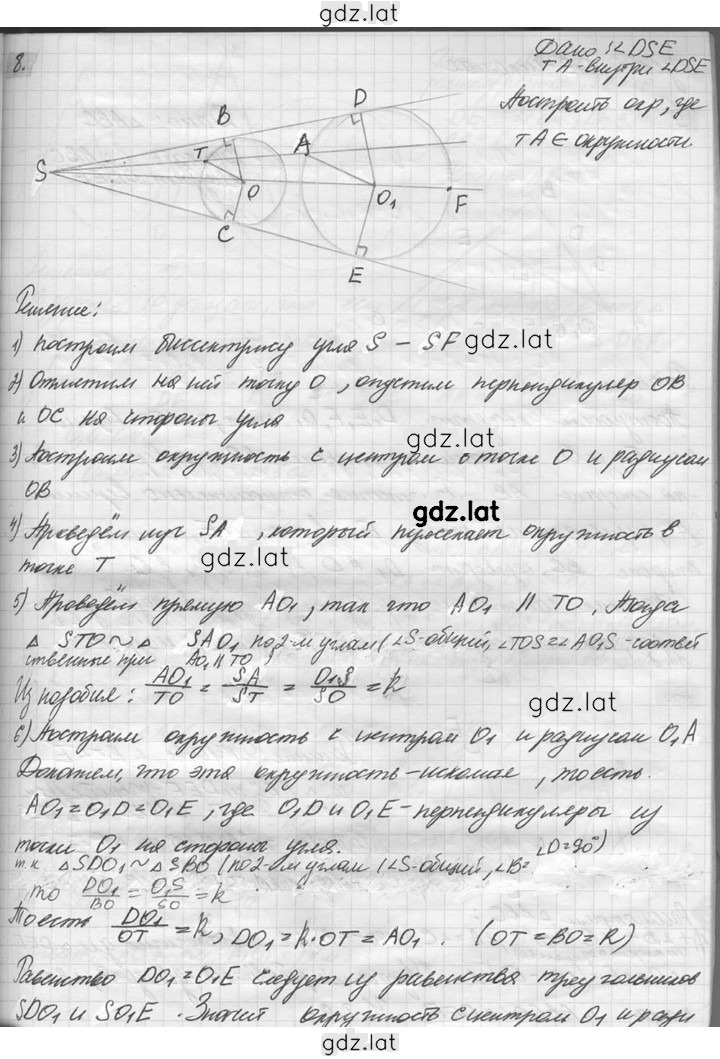 gdz.lat
8.
Дано: ∠DSE
TA-внутри ∠DSE
Построить окр, где
TA ∈ окружности
B
D
T
A
S
O
O₁
F
C
E
Решение:
1) построим биссектрису угла S – SF
gdz.lat
2) Отметим на ней точку O, опустим перпендикуляр OB
и OC на стороны угла
gdz.lat
3) Построим окружность с центром в точке O и радиусом
OB
gdz.lat
4) Проведём луч SA, который пересекает окружность в
точке T
gdz.lat
5) Проведём прямую AO₁, так что AO₁ || TO. Тогда
△ STO ~ △ SAO₁ по 2-м углам (∠S-общий, ∠TOS = ∠AO₁S-соответ
ственные при AO₁ || TO)
Из подобия: AO₁/TO = SA/ST = O₁S/SO = k
gdz.lat
6) Построим окружность с центром O₁ и радиусом O₁A
Докажем, что эта окружность-искомая, то есть
AO₁ = O₁D = O₁E, где O₁D и O₁E-перпендикуляры из
точки O₁ на стороны угла.
т.к △SDO₁ ~ △SBO (по 2-м углам (∠S-общий, ∠B= ∠D=90°)
то DO₁/BO = O₁S/SO = k
То есть DO₁/OT = k, DO₁ = k·OT = AO₁. (OT = BO = R)
Равенство DO₁ = O₁E следует из равенства треугольников
SDO₁ и SO₁E. Значит окружность с центром O₁ и ради
gdz.lat